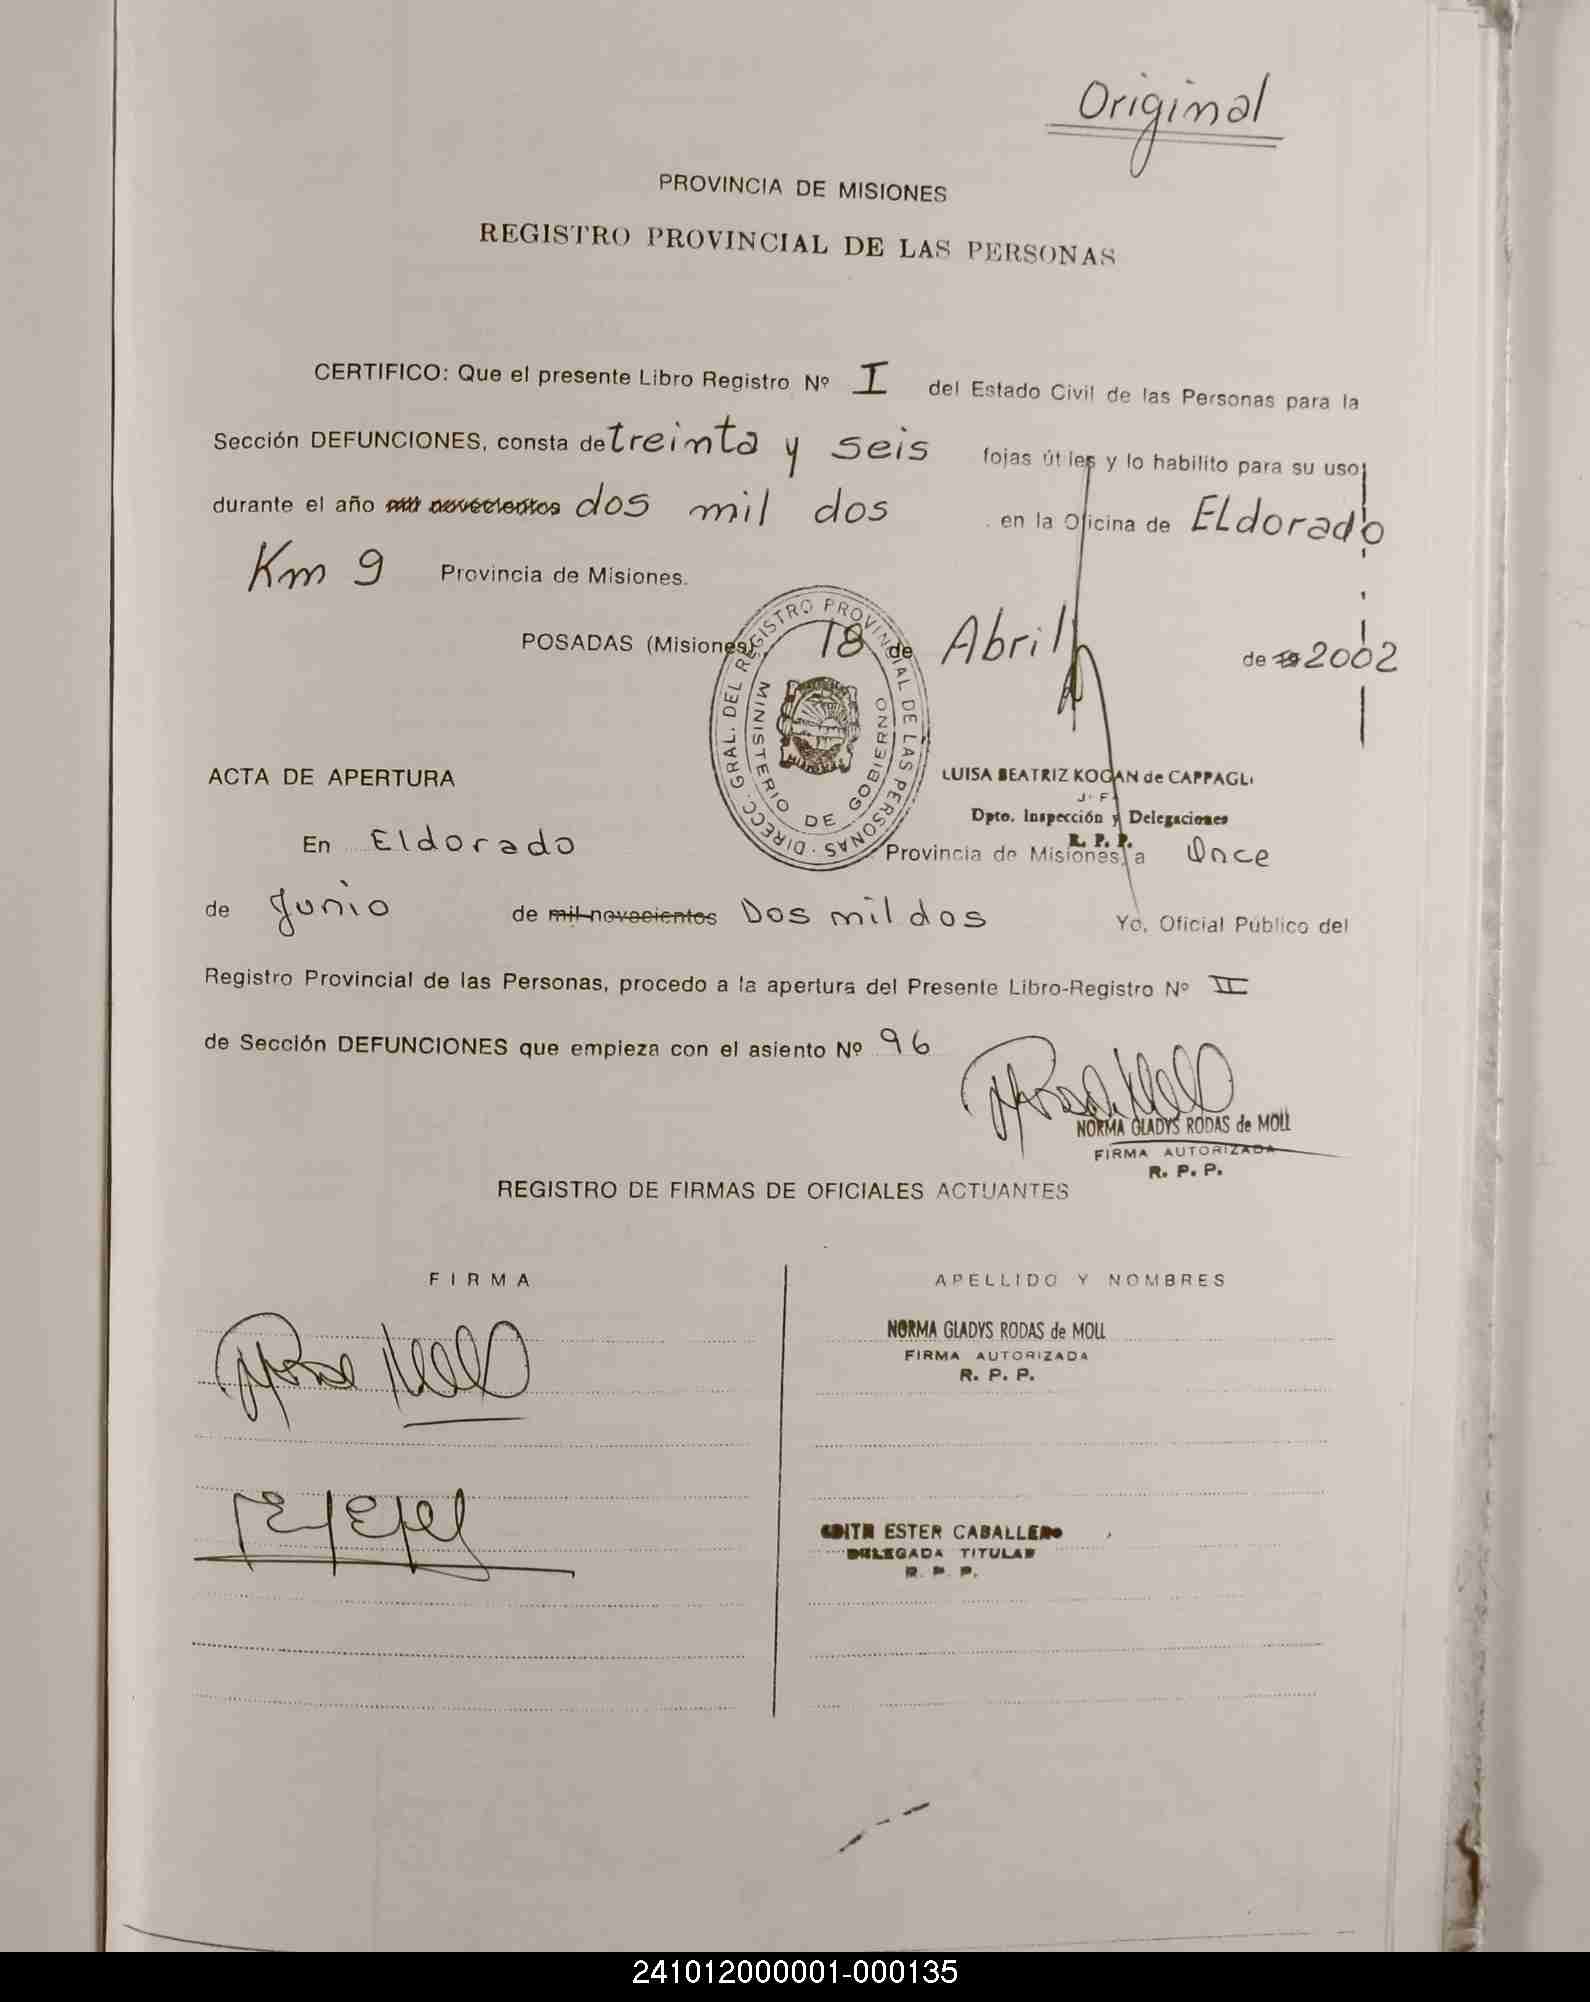 Original
PROVINCIA DE MISIONES
REGISTRO PROVINCIAL DE LAS PERSONAS
CERTIFICO: Que el presente Libro Registro Nº I del Estado Civil de las Personas para la
Sección DEFUNCIONES, consta de treinta y seis fojas útiles y lo habilito para su uso
durante el año mil novecientos dos mil dos en la Oficina de ELdorado
Km 9 Provincia de Misiones.
POSADAS (Misiones), 18 de Abril de 19 2002
DIRECC. GRAL. DEL REGISTRO PROVINCIAL DE LAS PERSONAS
MINISTERIO DE GOBIERNO
LUISA BEATRIZ KOGAN de CAPPAGLI
J. F.
Dpto. Inspección y Delegaciones
R. P. P.
ACTA DE APERTURA
En Eldorado Provincia de Misiones, a Once
de Junio de mil novecientos Dos mil dos Yo, Oficial Público del
Registro Provincial de las Personas, procedo a la apertura del Presente Libro-Registro Nº II
de Sección DEFUNCIONES que empieza con el asiento Nº 96
NORMA GLADYS RODAS de MOLL
FIRMA AUTORIZADA
R. P. P.
REGISTRO DE FIRMAS DE OFICIALES ACTUANTES
FIRMA APELLIDO Y NOMBRES
NORMA GLADYS RODAS de MOLL
FIRMA AUTORIZADA
R. P. P.
EDITH ESTER CABALLERO
DELEGADA TITULAR
R. P. P.
241012000001-000135